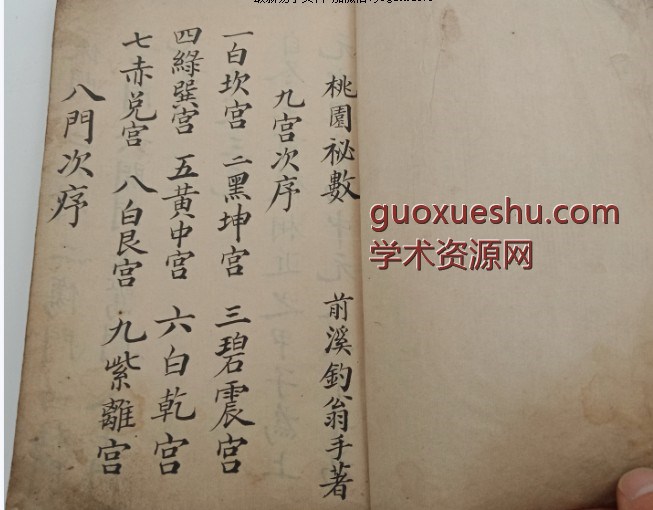 桃園祕數 前溪釣翁手著
九宮次序
一白坎宮 二黑坤宮 三碧震宮
四綠巽宮 五黃中宮 六白乾宮
七赤兌宮 八白艮宮 九紫離宮
八門次序
guoxueshu.com
学术资源网